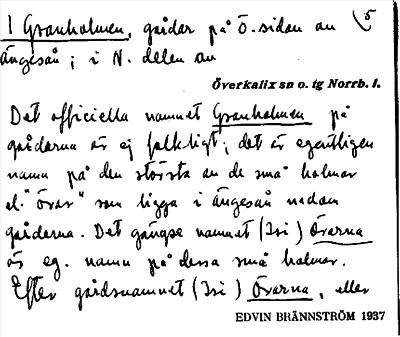 1 Granholmen, gårdar på Ö. sidan av 5
Ängesån; i N. delen av
Överkalix sn o. tg Norrb. l.
Det officiella namnet Granholmen på
gårdarna är ej folkligt; det är egentligen
namn på den största av de små holmar
el. "övar" som ligga i Ängesån nedan
gårdarna. Det gängse namnet (Isi) Övarna
är eg. namn på dessa små holmar.
Efter gårdsnamnet (Isi) Övarna, eller
EDVIN BRÄNNSTRÖM 1937